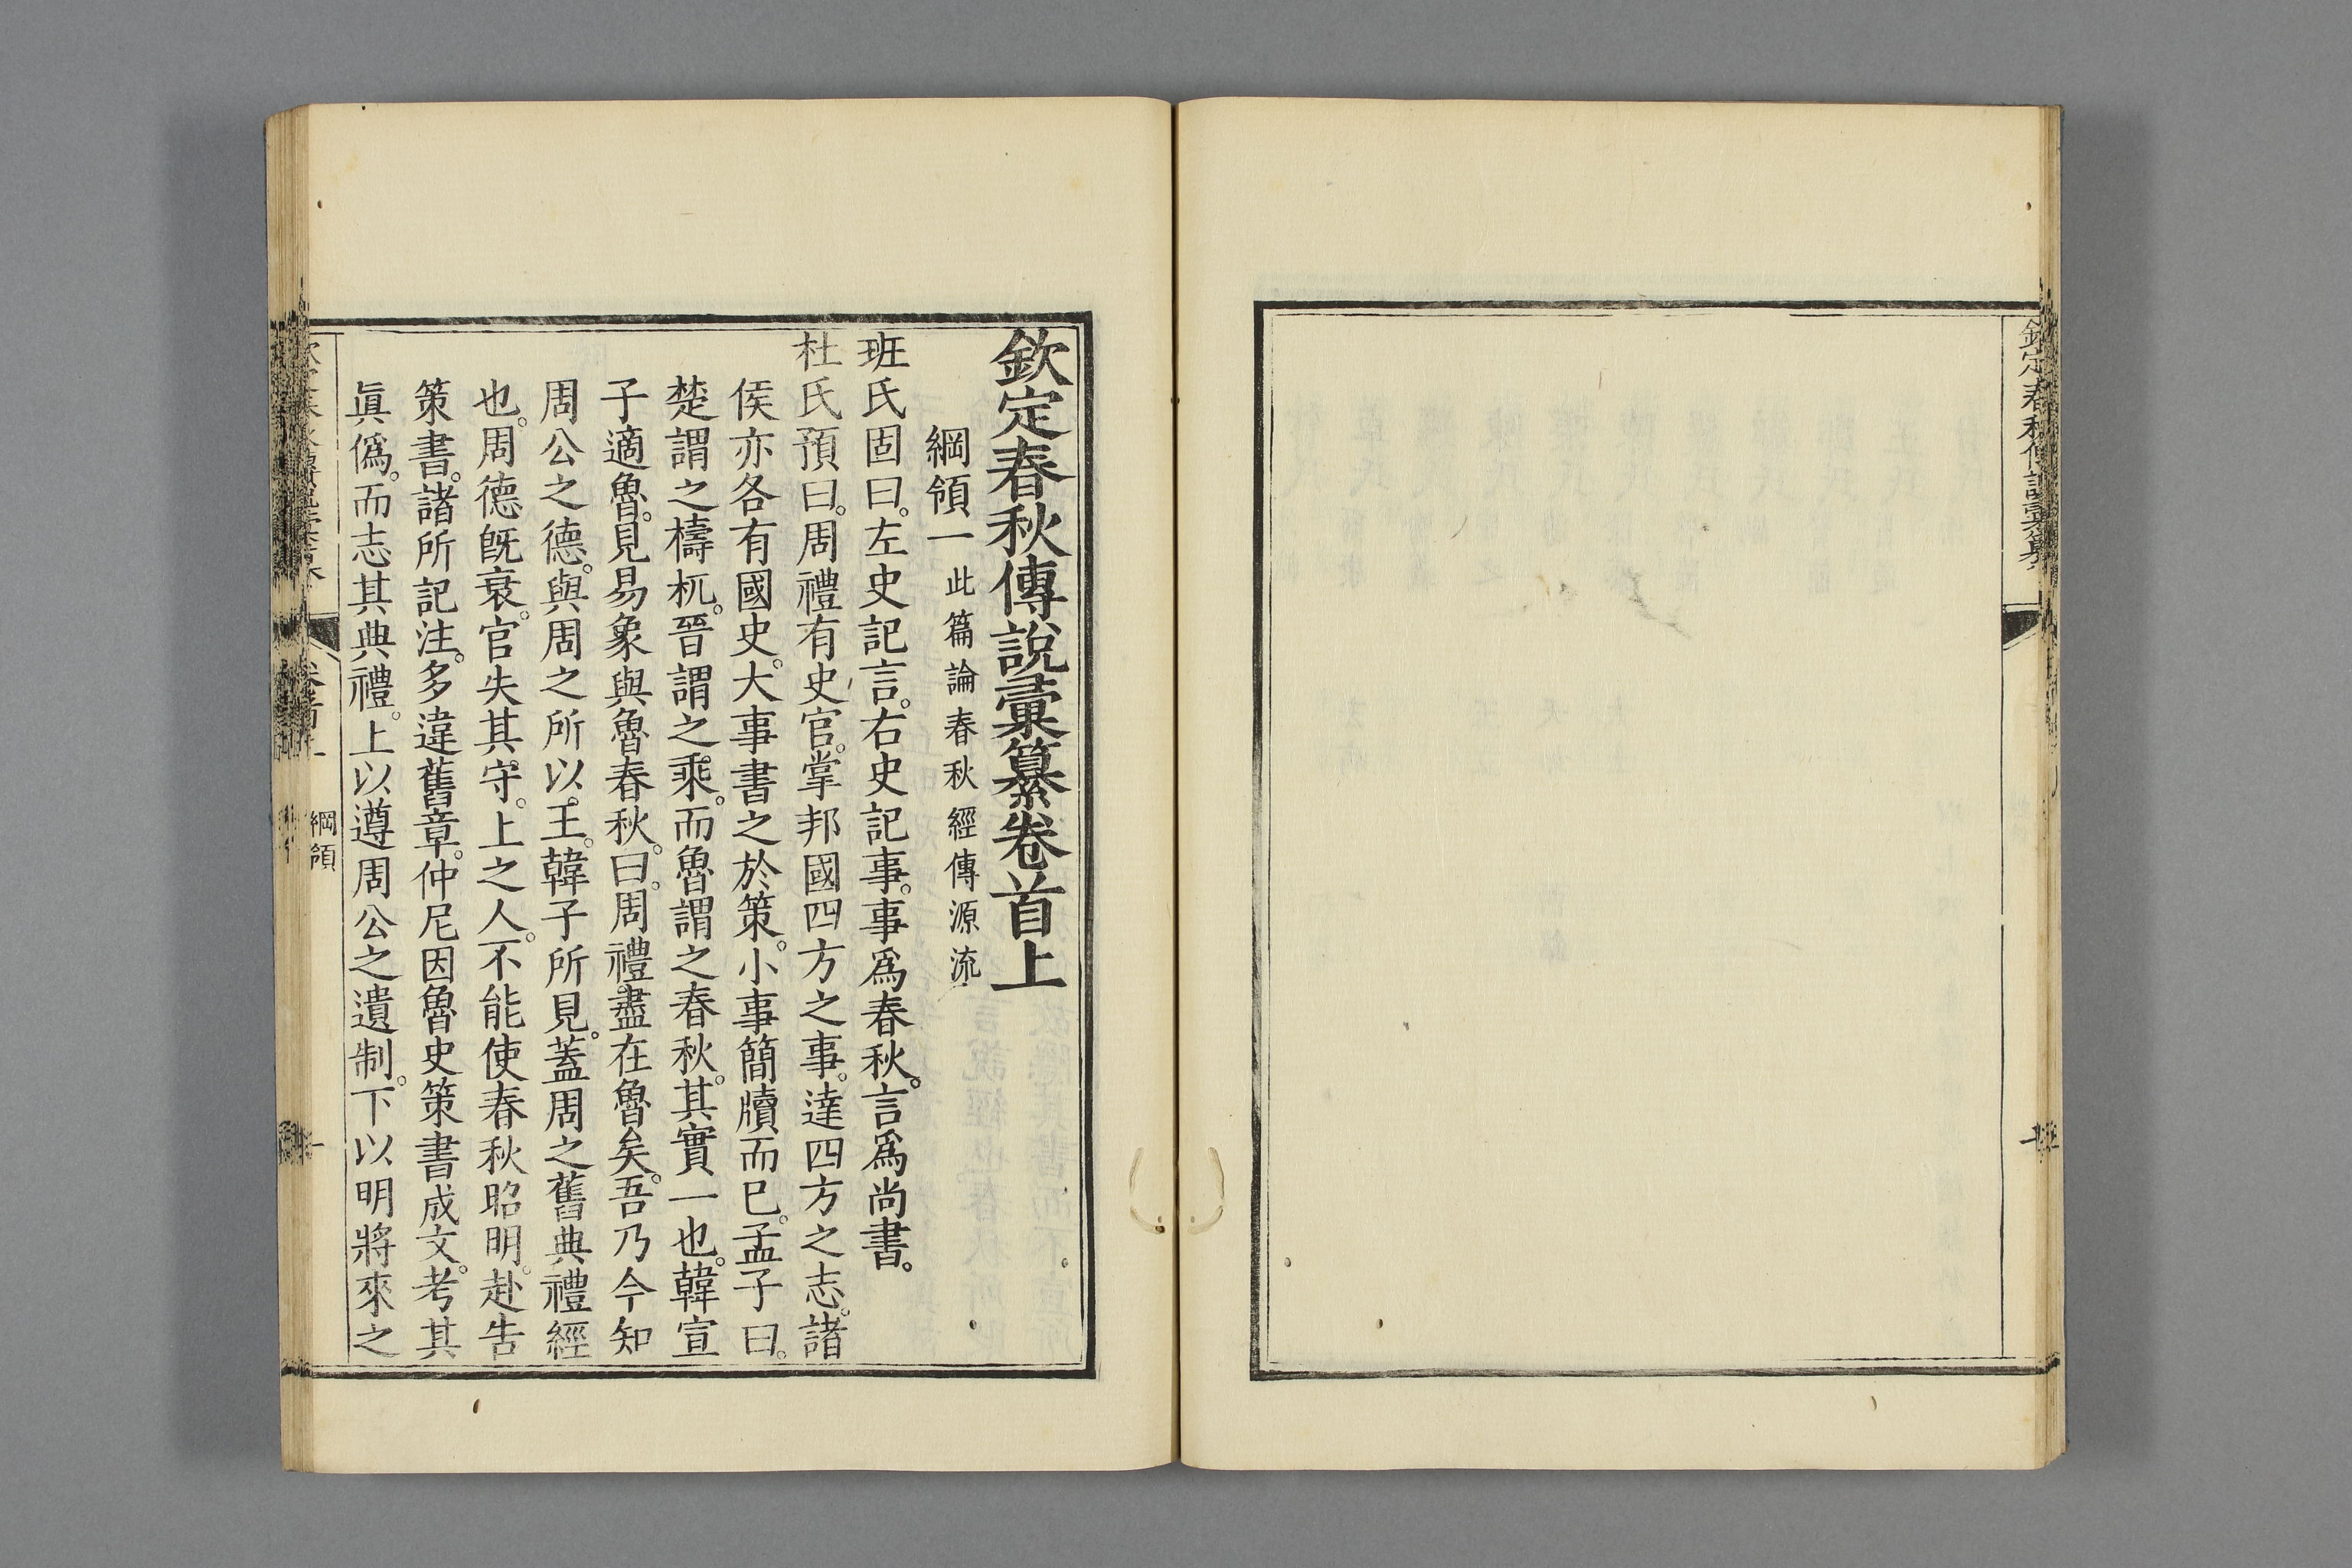 欽定春秋傳說彙纂
欽定春秋傳說彙纂卷首上
綱領一 此篇論春秋經傳源流
班氏固曰。左史記言。右史記事。事爲春秋。言爲尚書。
杜氏預曰。周禮有史官。掌邦國四方之事。達四方之志。諸
侯亦各有國史。大事書之於策。小事簡牘而已。孟子曰。
楚謂之檮杌。晉謂之乘。而魯謂之春秋。其實一也。韓宣
子適魯。見易象與魯春秋。曰。周禮盡在魯矣。吾乃今知
周公之德。與周之所以王。韓子所見。蓋周之舊典禮經
也。周德旣衰。官失其守。上之人。不能使春秋昭明。赴告
策書。諸所記注。多違舊章。仲尼因魯史策書成文。考其
眞僞。而志其典禮。上以遵周公之遺制。下以明將來之
綱領